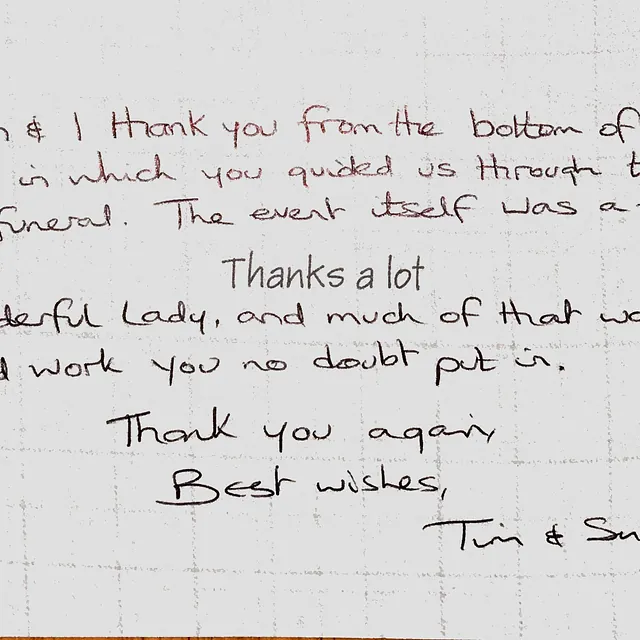 & I thank you from the bottom of
in which you guided us through
funeral. The event itself was a
Thanks a lot
derful Lady, and much of that
work you no doubt put in.
Thank you again,
Best wishes,
Tim &